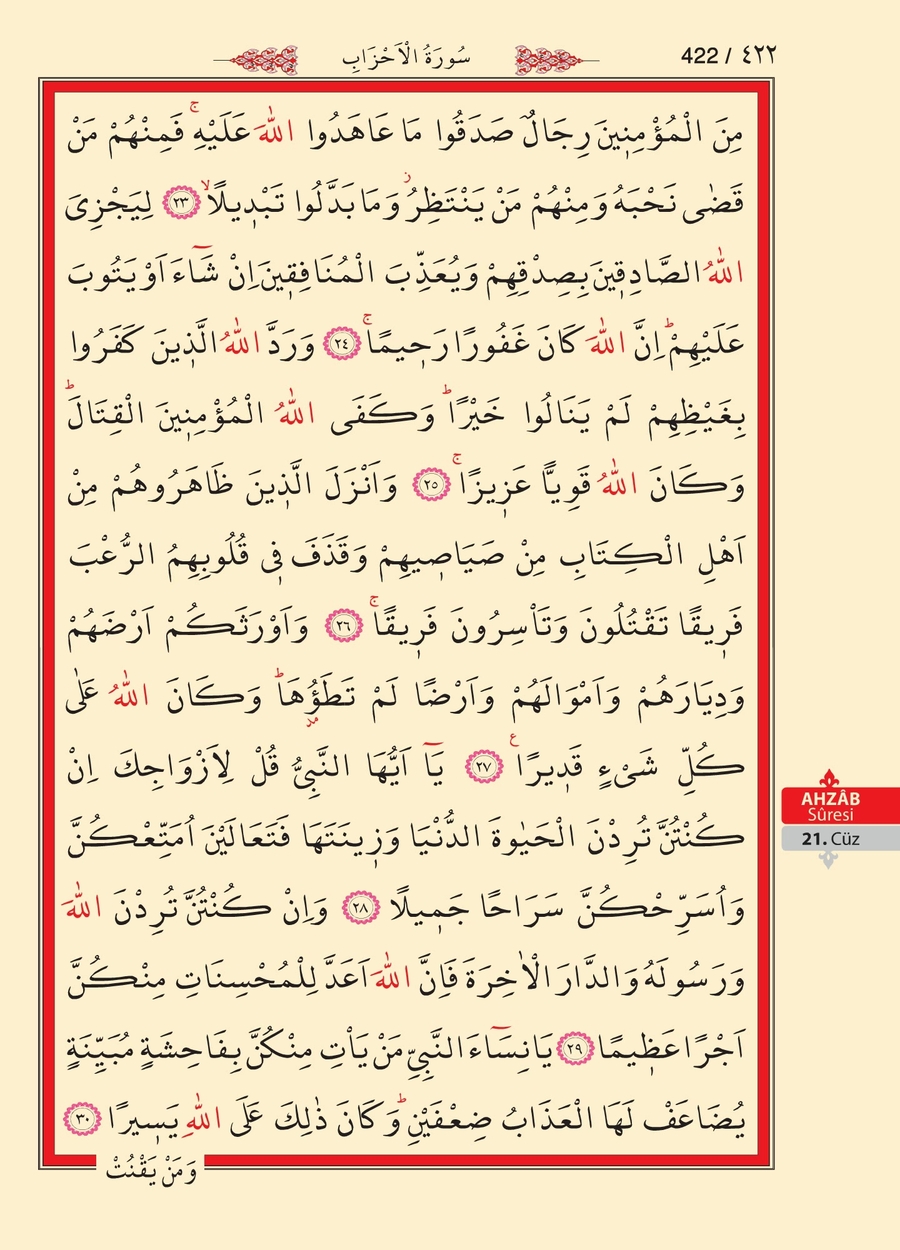 سُورَةُ الْاَحْزَابِ
422 / ٤٢٢
مِنَ الْمُؤْمِنٖينَ رِجَالٌ صَدَقُوا مَا عَاهَدُوا اللّٰهَ عَلَيْهِۚ فَمِنْهُمْ مَنْ
قَضٰى نَحْبَهُ وَمِنْهُمْ مَنْ يَنْتَظِرُؗ وَمَا بَدَّلُوا تَبْدٖيلًاۙ ﴿٢٣﴾ لِيَجْزِىَ
اللّٰهُ الصَّادِقٖينَ بِصِدْقِهِمْ وَيُعَذِّبَ الْمُنَافِقٖينَ اِنْ شَٓاءَ اَوْ يَتُوبَ
عَلَيْهِمْؕ اِنَّ اللّٰهَ كَانَ غَفُورًا رَحٖيمًاۚ ﴿٢٤﴾ وَرَدَّ اللّٰهُ الَّذٖينَ كَفَرُوا
بِغَيْظِهِمْ لَمْ يَنَالُوا خَيْرًاؕ وَكَفَى اللّٰهُ الْمُؤْمِنٖينَ الْقِتَالَؕ
وَكَانَ اللّٰهُ قَوِيًّا عَزٖيزًاۚ ﴿٢٥﴾ وَاَنْزَلَ الَّذٖينَ ظَاهَرُوهُمْ مِنْ
اَهْلِ الْكِتَابِ مِنْ صَيَاصٖيهِمْ وَقَذَفَ فٖى قُلُوبِهِمُ الرُّعْبَ
فَرٖيقًا تَقْتُلُونَ وَتَاْسِرُونَ فَرٖيقًاۚ ﴿٢٦﴾ وَاَوْرَثَكُمْ اَرْضَهُمْ
وَدِيَارَهُمْ وَاَمْوَالَهُمْ وَاَرْضًا لَمْ تَطَؤُ۫هَاؕ وَكَانَ اللّٰهُ عَلٰى
كُلِّ شَیْءٍ قَدٖيرًا ع ﴿٢٧﴾ يَٓا اَيُّهَا النَّبِىُّ قُلْ لِاَزْوَاجِكَ اِنْ
كُنْتُنَّ تُرِدْنَ الْحَيٰوةَ الدُّنْيَا وَزٖينَتَهَا فَتَعَالَيْنَ اُمَتِّعْكُنَّ
وَاُسَرِّحْكُنَّ سَرَاحًا جَمٖيلًا ﴿٢٨﴾ وَاِنْ كُنْتُنَّ تُرِدْنَ اللّٰهَ
وَرَسُولَهُ وَالدَّارَ الْاٰخِرَةَ فَاِنَّ اللّٰهَ اَعَدَّ لِلْمُحْسِنَاتِ مِنْكُنَّ
اَجْرًا عَظٖيمًا ﴿٢٩﴾ يَانِسَٓاءَ النَّبِىِّ مَنْ يَاْتِ مِنْكُنَّ بِفَاحِشَةٍ مُبَيِّنَةٍ
يُضَاعَفْ لَهَا الْعَذَابُ ضِعْفَيْنِؕ وَكَانَ ذٰلِكَ عَلَى اللّٰهِ يَسٖيرًا ﴿٣٠﴾
وَمَنْ يَقْنُتْ
AHZÂB
Sûresi
21. Cüz